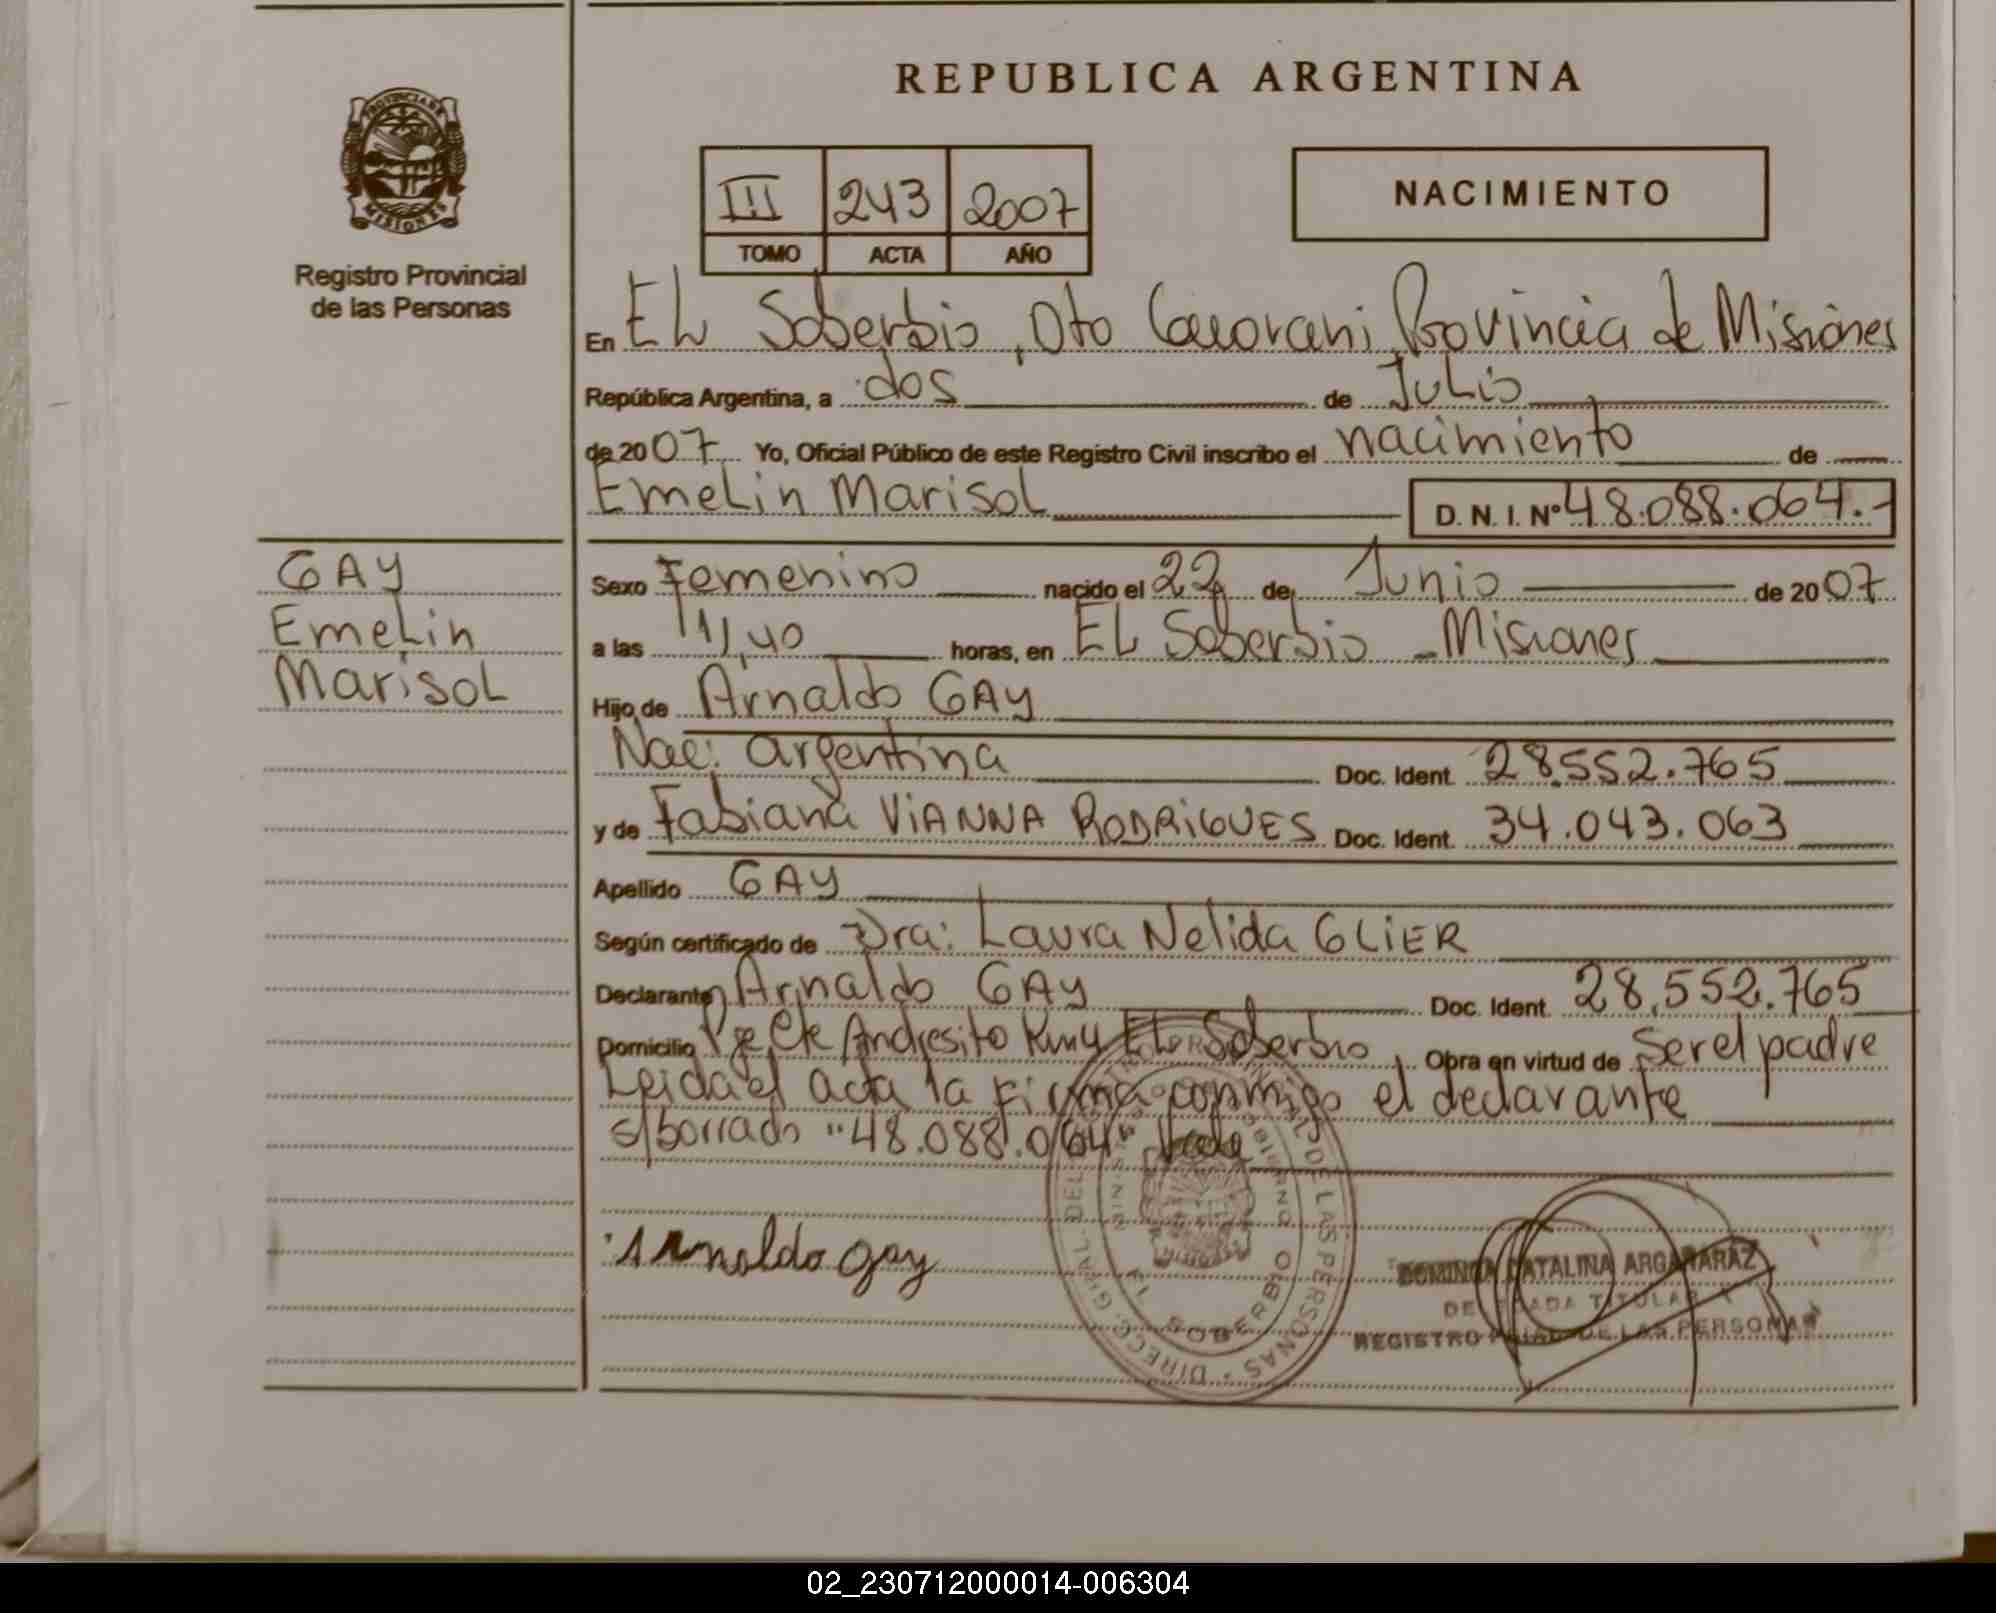 REPUBLICA ARGENTINA
PROVINCIA DE MISIONES
Registro Provincial
de las Personas
III 243 2007
TOMO ACTA AÑO
NACIMIENTO
En EL Soberbio, Dto Guarani Provincia de Misiones
República Argentina, a dos de Julio
de 2007 Yo, Oficial Público de este Registro Civil inscribo el nacimiento de
Emelin Marisol D. N. I. Nº 48.088.064.-
GAY
Emelin
Marisol
Sexo Femenino nacido el 22 de Junio de 2007
a las 11,40 horas, en EL Soberbio - Misiones
Hijo de Arnaldo GAY
Nac: argentina Doc. Ident. 28.552.765
y de Fabiana ViANNA RODRiGUES Doc. Ident. 34.043.063
Apellido GAY
Según certificado de Dra: Laura Nelida GLiER
Declarante Arnaldo GAY Doc. Ident. 28.552.765
Domicilio Andresito EL Soberbio Obra en virtud de Ser el padre
Leida el acta la firma conmigo el declarante
s/borrado "48.088.064" Vale
Arnoldo gay
DIRECC. GRAL. DEL DE LAS PERSONAS
SOBERBIO
DOMINGA CATALINA ARGAÑARAZ
TITULAR
REGISTRO DE LAS PERSONAS
02_230712000014-006304